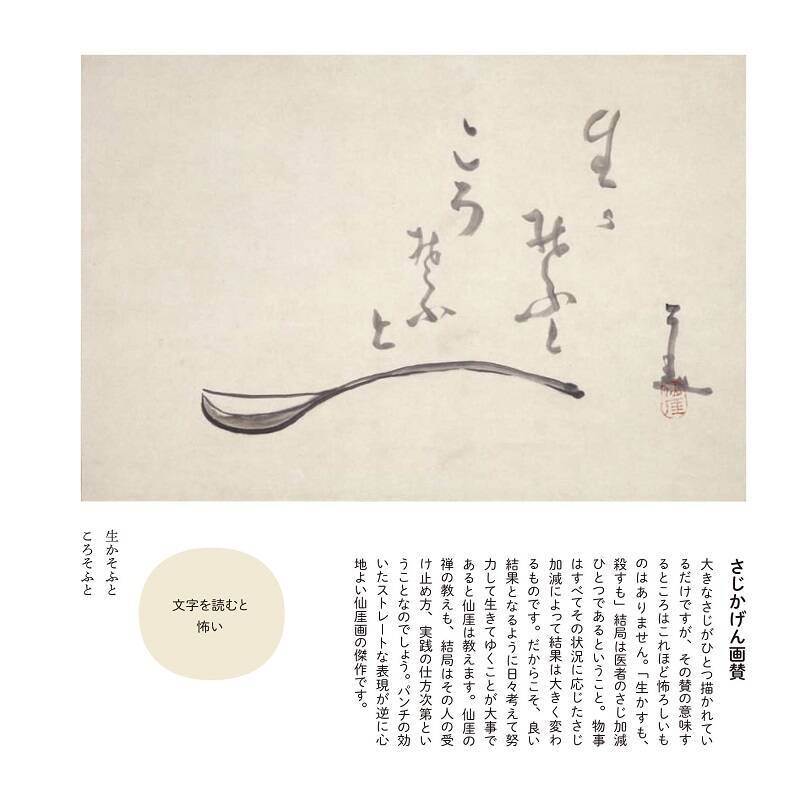 生か
そふと
ころ
そふ
と
仙厓
さじかげん画賛
大きなさじがひとつ描かれてい
るだけですが、その賛の意味す
るところはこれほど怖ろしいも
のはありません。「生かすも、
殺すも」結局は医者のさじ加減
ひとつであるということ。物事
はすべてその状況に応じたさじ
加減によって結果は大きく変わ
るものです。だからこそ、良い
結果となるように日々考えて努
力して生きてゆくことが大事で
あると仙厓は教えます。仙厓の
禅の教えも、結局はその人の受
け止め方、実践の仕方次第とい
うことなのでしょう。パンチの効
いたストレートな表現が逆に心
地よい仙厓画の傑作です。
文字を読むと
怖い
生かそふと
ころそふと